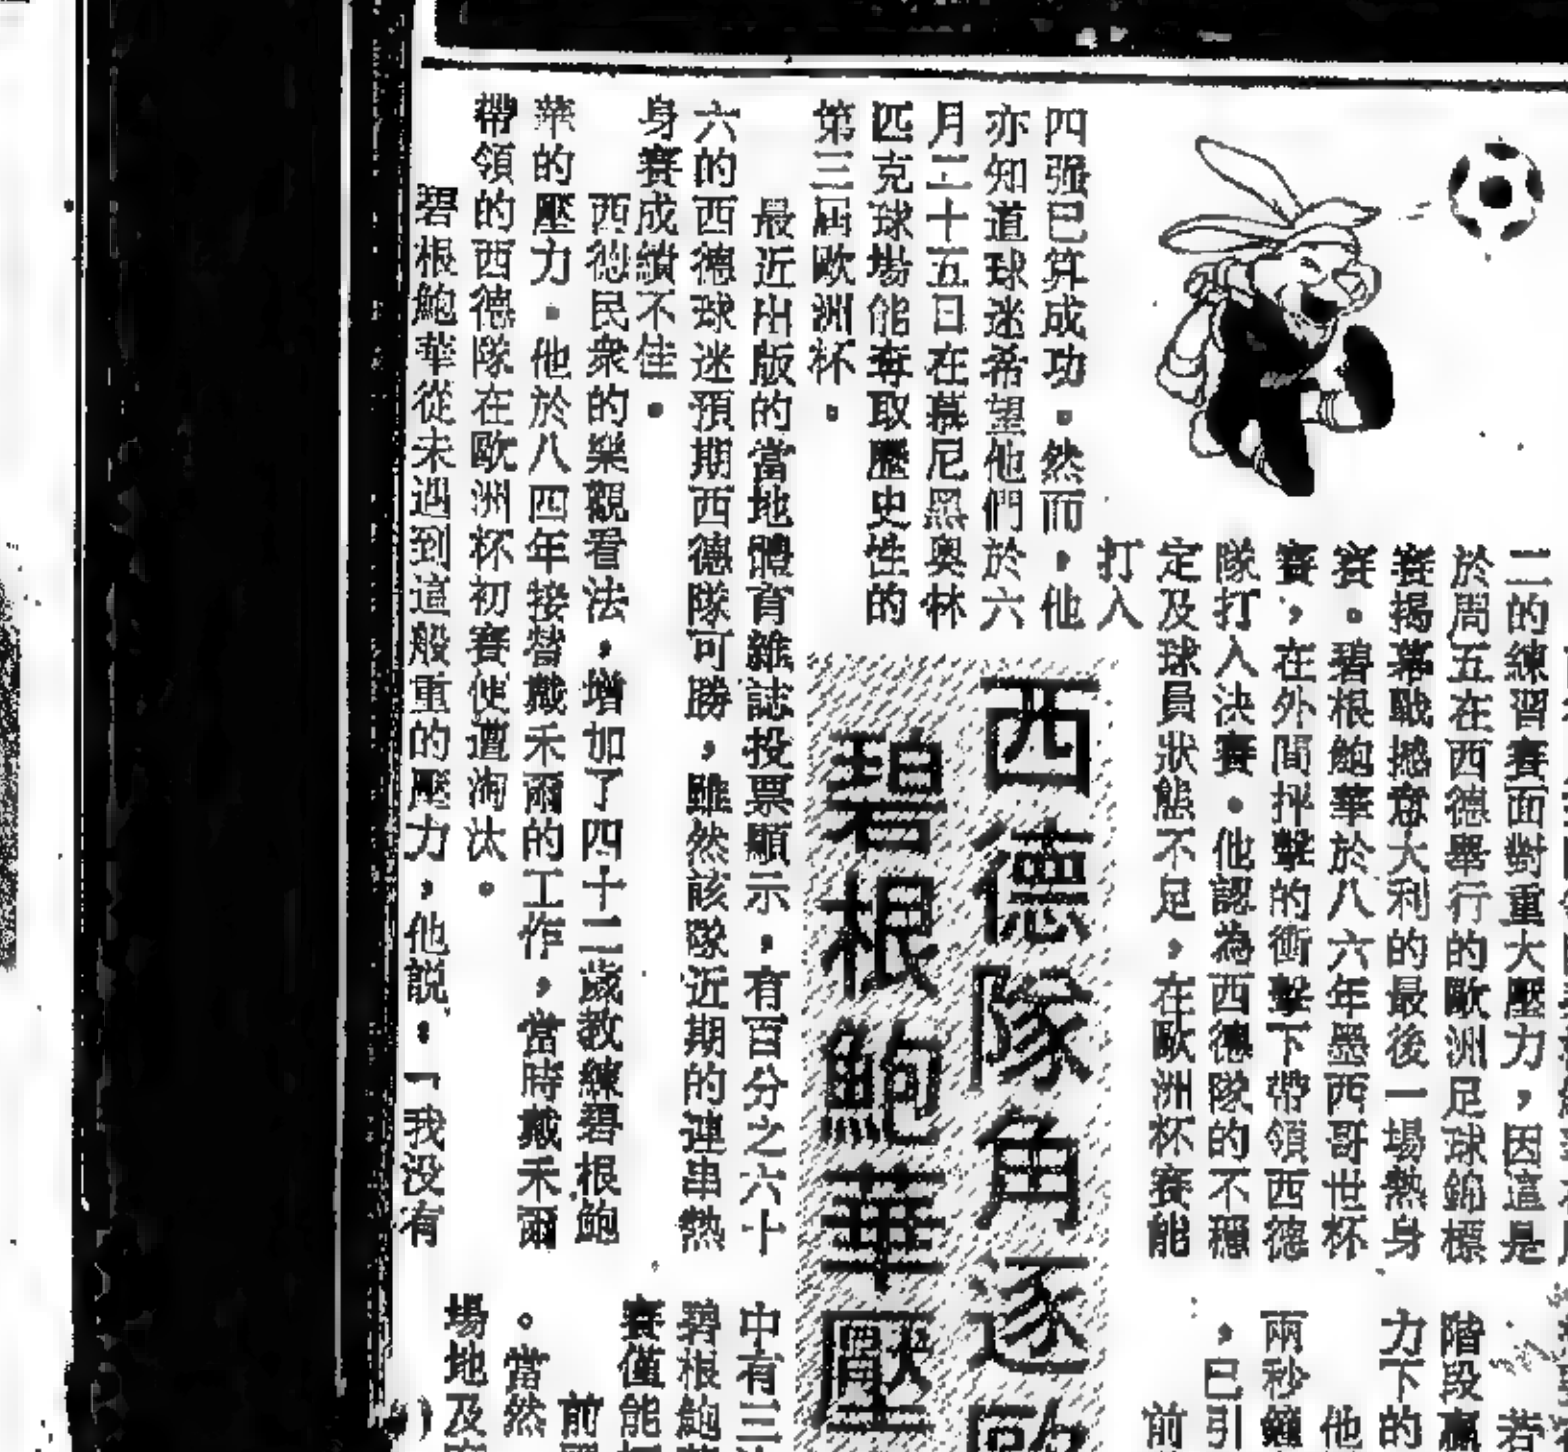 西德隊角逐歐
碧根鮑華壓
二的練習賽面對重大壓力，因這是
於周五在西德舉行的歐洲足球錦標
賽揭幕戰撼意大利的最後一場熱身
賽。碧根鮑華於八六年墨西哥世杯
賽，在外間抨擊的衝擊下帶領西德
隊打入決賽。他認為西德隊的不穩
定及球員狀態不足，在歐洲杯賽能
打入
四强已算成功。然而，他
亦知道球迷希望他們於六
月二十五日在慕尼黑奧林
匹克球場能奪取歷史性的
第三屆歐洲杯。
最近出版的當地體育雜誌投票顯示，有百分之六十
六的西德球迷預期西德隊可勝，雖然該隊近期的連串熱
身賽成績不佳。
西德民衆的樂觀看法，增加了四十二歲教練碧根鮑
華的壓力。他於八四年接替戴禾爾的工作，當時戴禾爾
帶領的西德隊在歐洲杯初賽便遭淘汰。
碧根鮑華從未遇到這般重的壓力，他說：「我没有
若
階段贏
力下的
他
兩秒鐘
，已引
前
中有三
碧根鮑
賽僅能
前
。當然
場地及